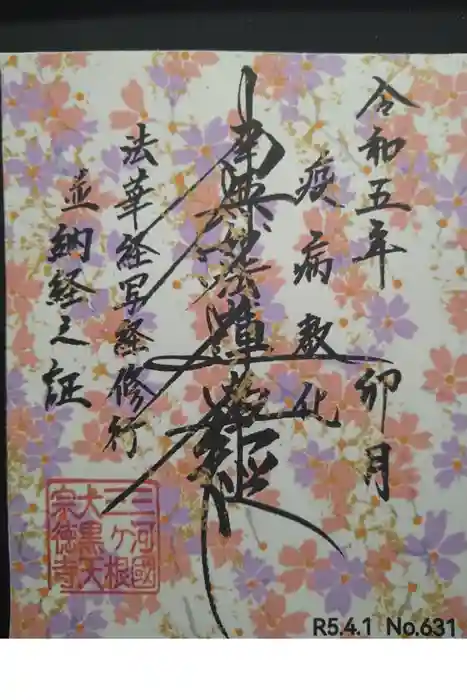 令和五年 卯月
疫病教化
南無妙法蓮華経
法華経写経修行
並納経之証
三河國
三ヶ根
大黒天
宗徳寺
R5.4.1 No.631